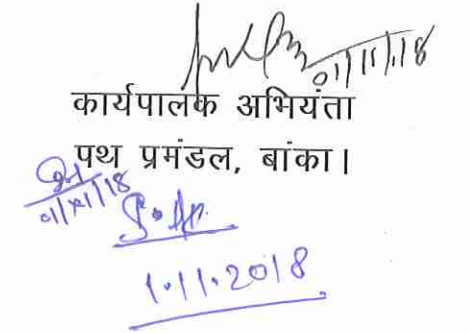 01/11/18
कार्यपालक अभियंता
पथ प्रमंडल, बांका।
01/11/18
1.11.2018